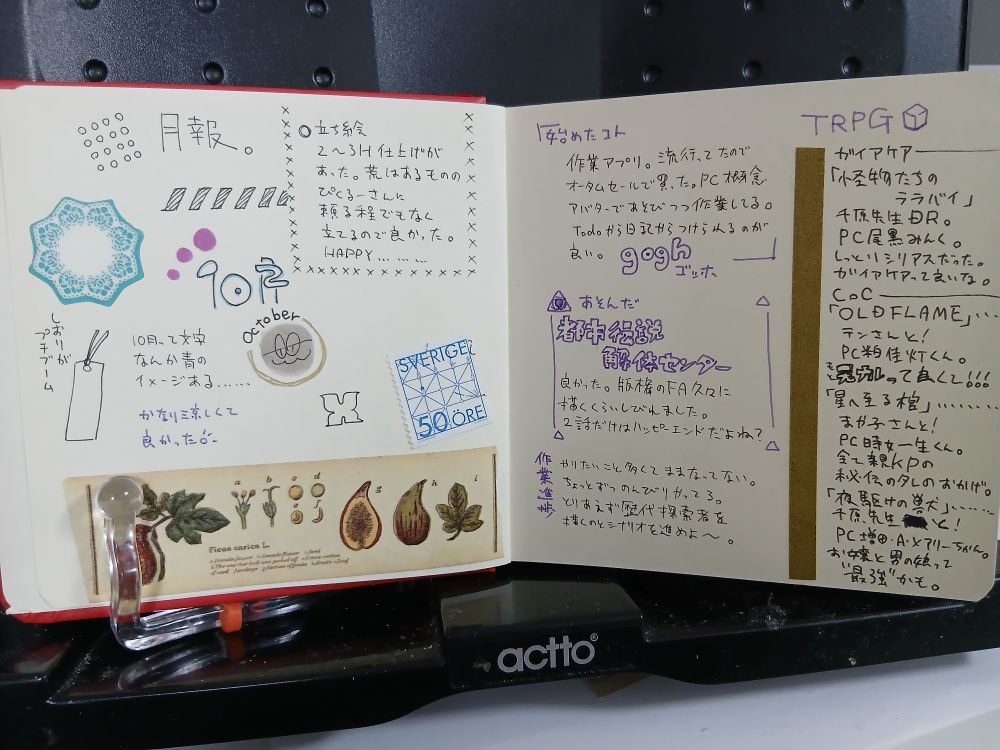 月報。
○立ち絵
2～3H仕上げが
あった。荒はあるものの
ぴくるーさんに
頼る程でもなく
立てるので良かった。
HAPPY.........
10月
October
しおりが
プチブーム
10月って文字
なんか青の
イメージある......
かなり涼しくて
良かった
SVERIGE
50 ÖRE
a b c d e f g h i
Ficus carica L.
「始めたコト
作業アプリ。流行ってたので
オータムセールで買った。PC概念
アバターであそびつつ作業してる。
Todoから日記からつけられるのが
良い。
gogh
ゴッホ
あそんだ
都市伝説
解体センター
良かった。版権のFA久々に
描くくらいしびれました。
2話だけはハッピーエンドだよね?
作業進捗
やりたいこと多くてままなってない。
ちょっとずつのんびりやってる。
とりあえず歴代探索者を
描くのとシナリオを進めよ～。
TRPG
ガイアケア
「怪物たちの
ララバイ」
千原先生DR。
PC尾黒みんく。
しっとりシリアスだった。
ガイアケアって良いな。
CoC
「OLD FLAME」...
テンさんと!
PC粕佳灯くん。
って良くて!!!
「星へ至る棺」.........
まが子さんと!
PC時女一生くん。
全て親KPの
秘伝のタレのおかげ。
「夜駆けの獣」......
千原先生と!
PC増田・A・メアリーちゃん。
お嬢と男の娘って
"最強"かも。
actto®